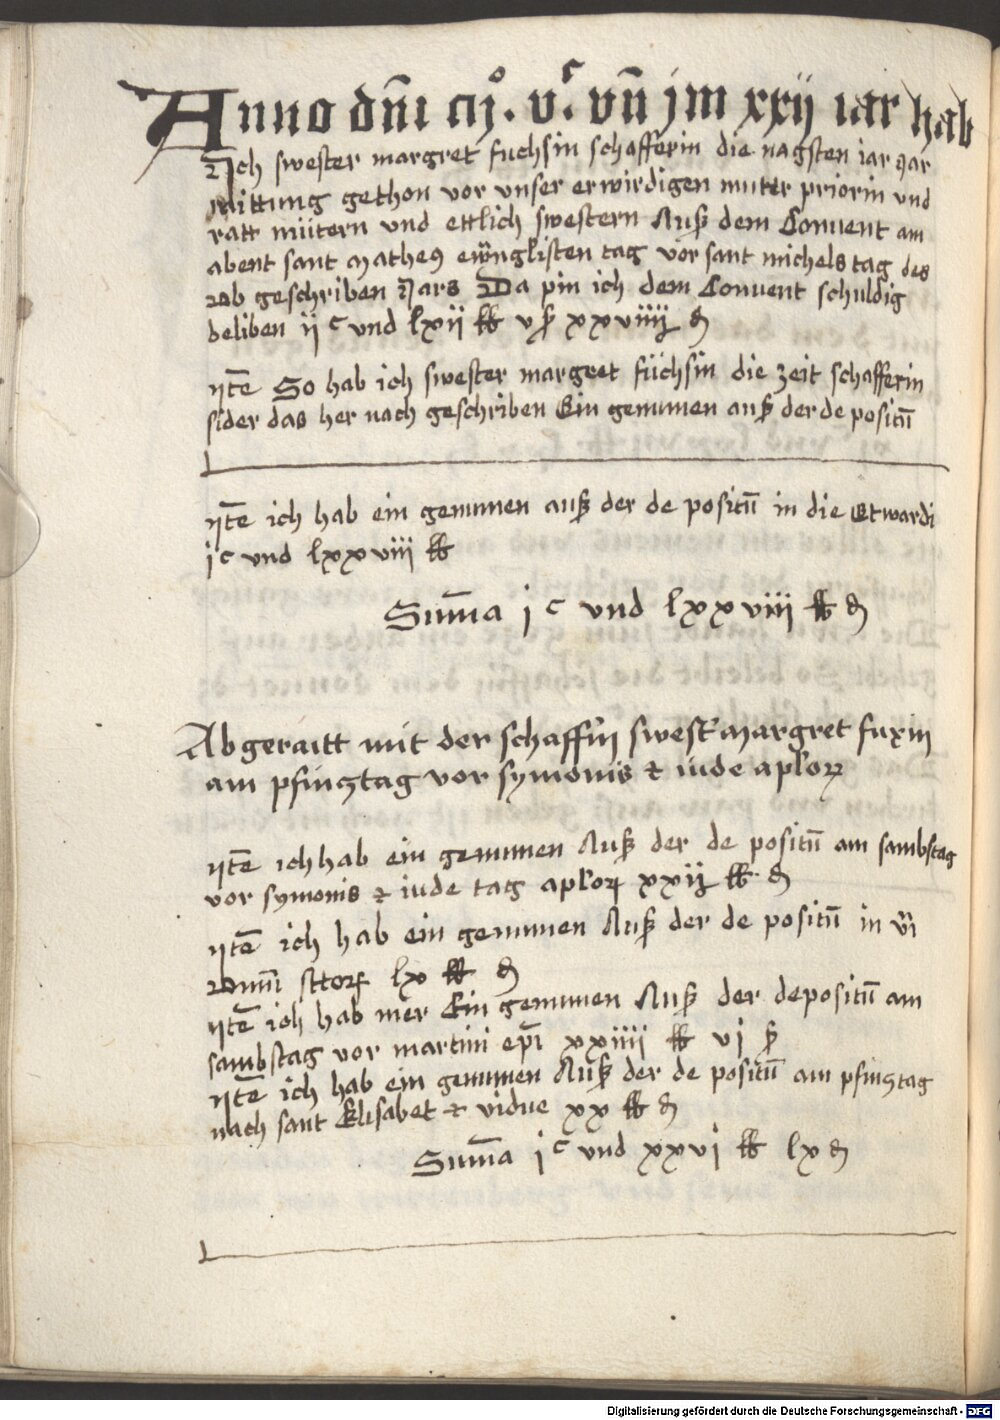 Anno dm̄i mͦ. vᶜ. vn̄ jm xxij iar hab
Ich swester margret fuchsin schafferin die nagsten iar zar
raittung gethon vor vnser erwirdigen mutter priorin vnd
ratt mütern vnd ettlich swestern Auß dem Conuent am
abent sant matheus ewn̄glisten tag vor sant michels tag des
ob geschriben Jars Da pin ich dem Conuent schuldig
beliben ij c vnd lxii ℔ v ß xxviiij ₰
Itē So hab ich swester margret füchsin die zeit schafferin
sider das her nach geschriben Ein genumen auß der de positū
Itē ich hab ein genumen auß der de positū in die Etwardi
j c vnd lxxviii ℔
Sum̄a j c vnd lxxviii ℔ ₰
Abgeraitt mit der schaffrin swestʼ margret fuxin
am pfinztag vor symonis et iude aplorꝝ
Itē ich hab ein genumen Auß der de positū am sambstag
vor symonis et iude tag aplorꝝ xxij ℔ ₰
Itē ich hab ein genumen Auß der de positū in vi̅
omni̅ sctorꝝ lx ℔ ₰
Itē ich hab mer Ein genumen Auß der depositū am
sambstag vor martini ep̄i xxiiii ℔ vi ß
Itē ich hab ein genumen Auß der de positū am pfinztag
nach sant Elisabet et vidue xx ℔ ₰
Sum̄a j c vnd xxvi ℔ lx ₰
Digitalisierung gefördert durch die Deutsche Forschungsgemeinschaft - DFG